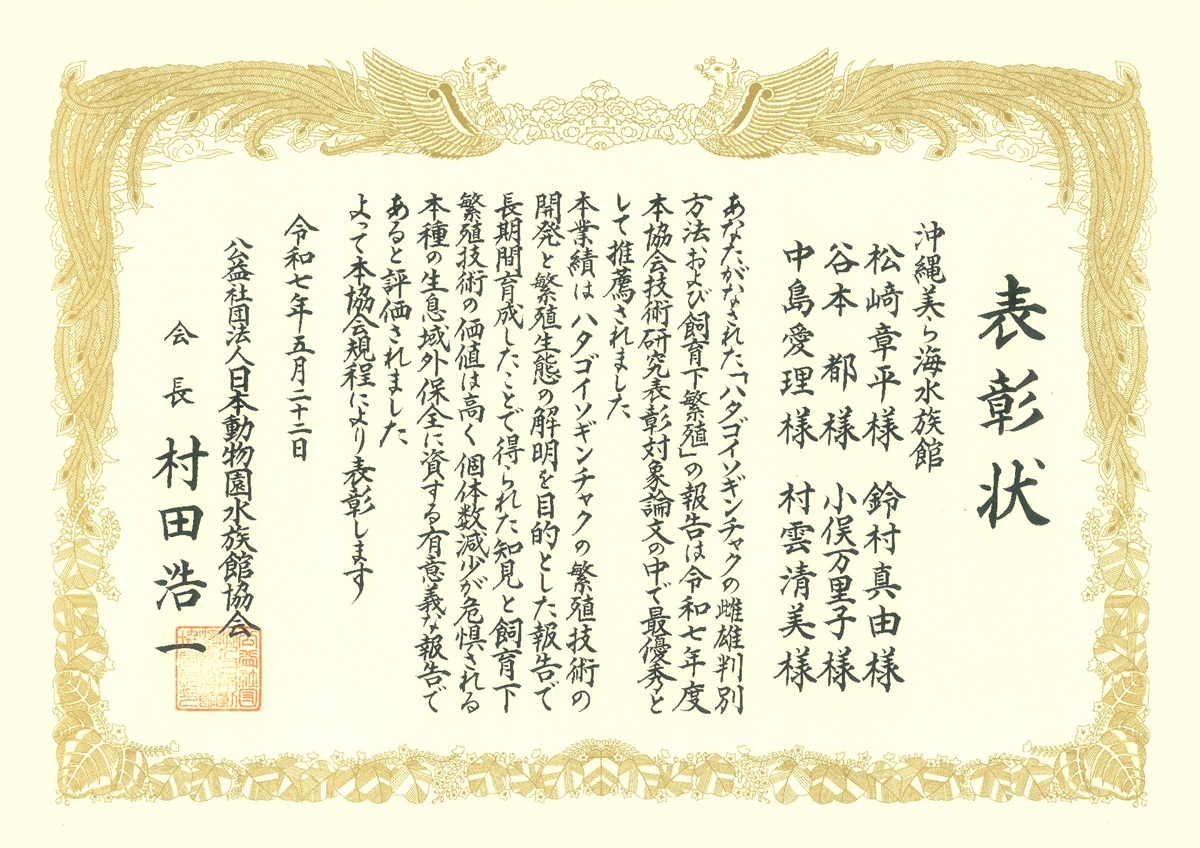 表彰状
沖縄美ら海水族館
松﨑章平様 鈴村真由様
谷本 都様 小俣万里子様
中島愛理様 村雲清美様
あなたがなされた「ハタゴイソギンチャクの雌雄判別
方法および飼育下繁殖」の報告は令和七年度
本協会技術研究表彰対象論文の中で最優秀と
して推薦されました
本業績は ハタゴイソギンチャクの繁殖技術の
開発と繁殖生態の解明を目的とした報告で
長期間育成したことで得られた知見と飼育下
繁殖技術の価値は高く 個体数減少が危惧される
本種の生息域外保全に資する有意義な報告で
あると評価されました
よって本協会規程により表彰します
令和七年五月二十二日
公益社団法人日本動物園水族館協会
会長 村田浩一